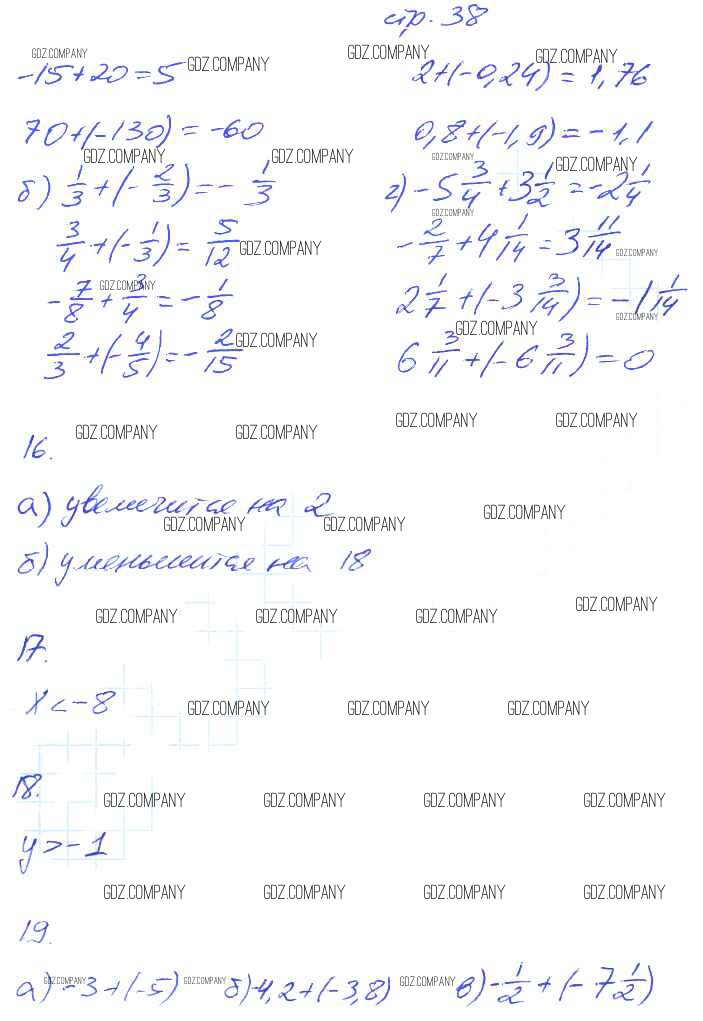 стр. 38
GDZ.COMPANY GDZ.COMPANY GDZ.COMPANY GDZ.COMPANY
-15+20=5 2+(-0,24)=1,76
70+(-130)=-60 0,8+(-1,9)=-1,1
GDZ.COMPANY GDZ.COMPANY GDZ.COMPANY GDZ.COMPANY
б) 1/3+(-2/3)=-1/3 г) -5 3/4+3 1/2=-2 1/4
GDZ.COMPANY
3/4+(-1/3)=5/12 -2/7+4 1/14=3 11/14
GDZ.COMPANY GDZ.COMPANY
-7/8+3/4=-1/8 2 1/7+(-3 3/14)=-1 1/14
GDZ.COMPANY GDZ.COMPANY
GDZ.COMPANY GDZ.COMPANY
2/3+(-4/5)=-2/15 6 3/11+(-6 3/11)=0
GDZ.COMPANY GDZ.COMPANY GDZ.COMPANY GDZ.COMPANY
16.
а) увеличится на 2
GDZ.COMPANY GDZ.COMPANY GDZ.COMPANY
б) уменьшится на 18
GDZ.COMPANY GDZ.COMPANY GDZ.COMPANY GDZ.COMPANY
17.
x<-8 GDZ.COMPANY GDZ.COMPANY GDZ.COMPANY
18.
GDZ.COMPANY GDZ.COMPANY GDZ.COMPANY GDZ.COMPANY
y>-1
GDZ.COMPANY GDZ.COMPANY GDZ.COMPANY GDZ.COMPANY
19.
GDZ.COMPANY GDZ.COMPANY GDZ.COMPANY
а) -3+(-5) б) -4,2+(-3,8) в) -1/2+(-7 1/2)